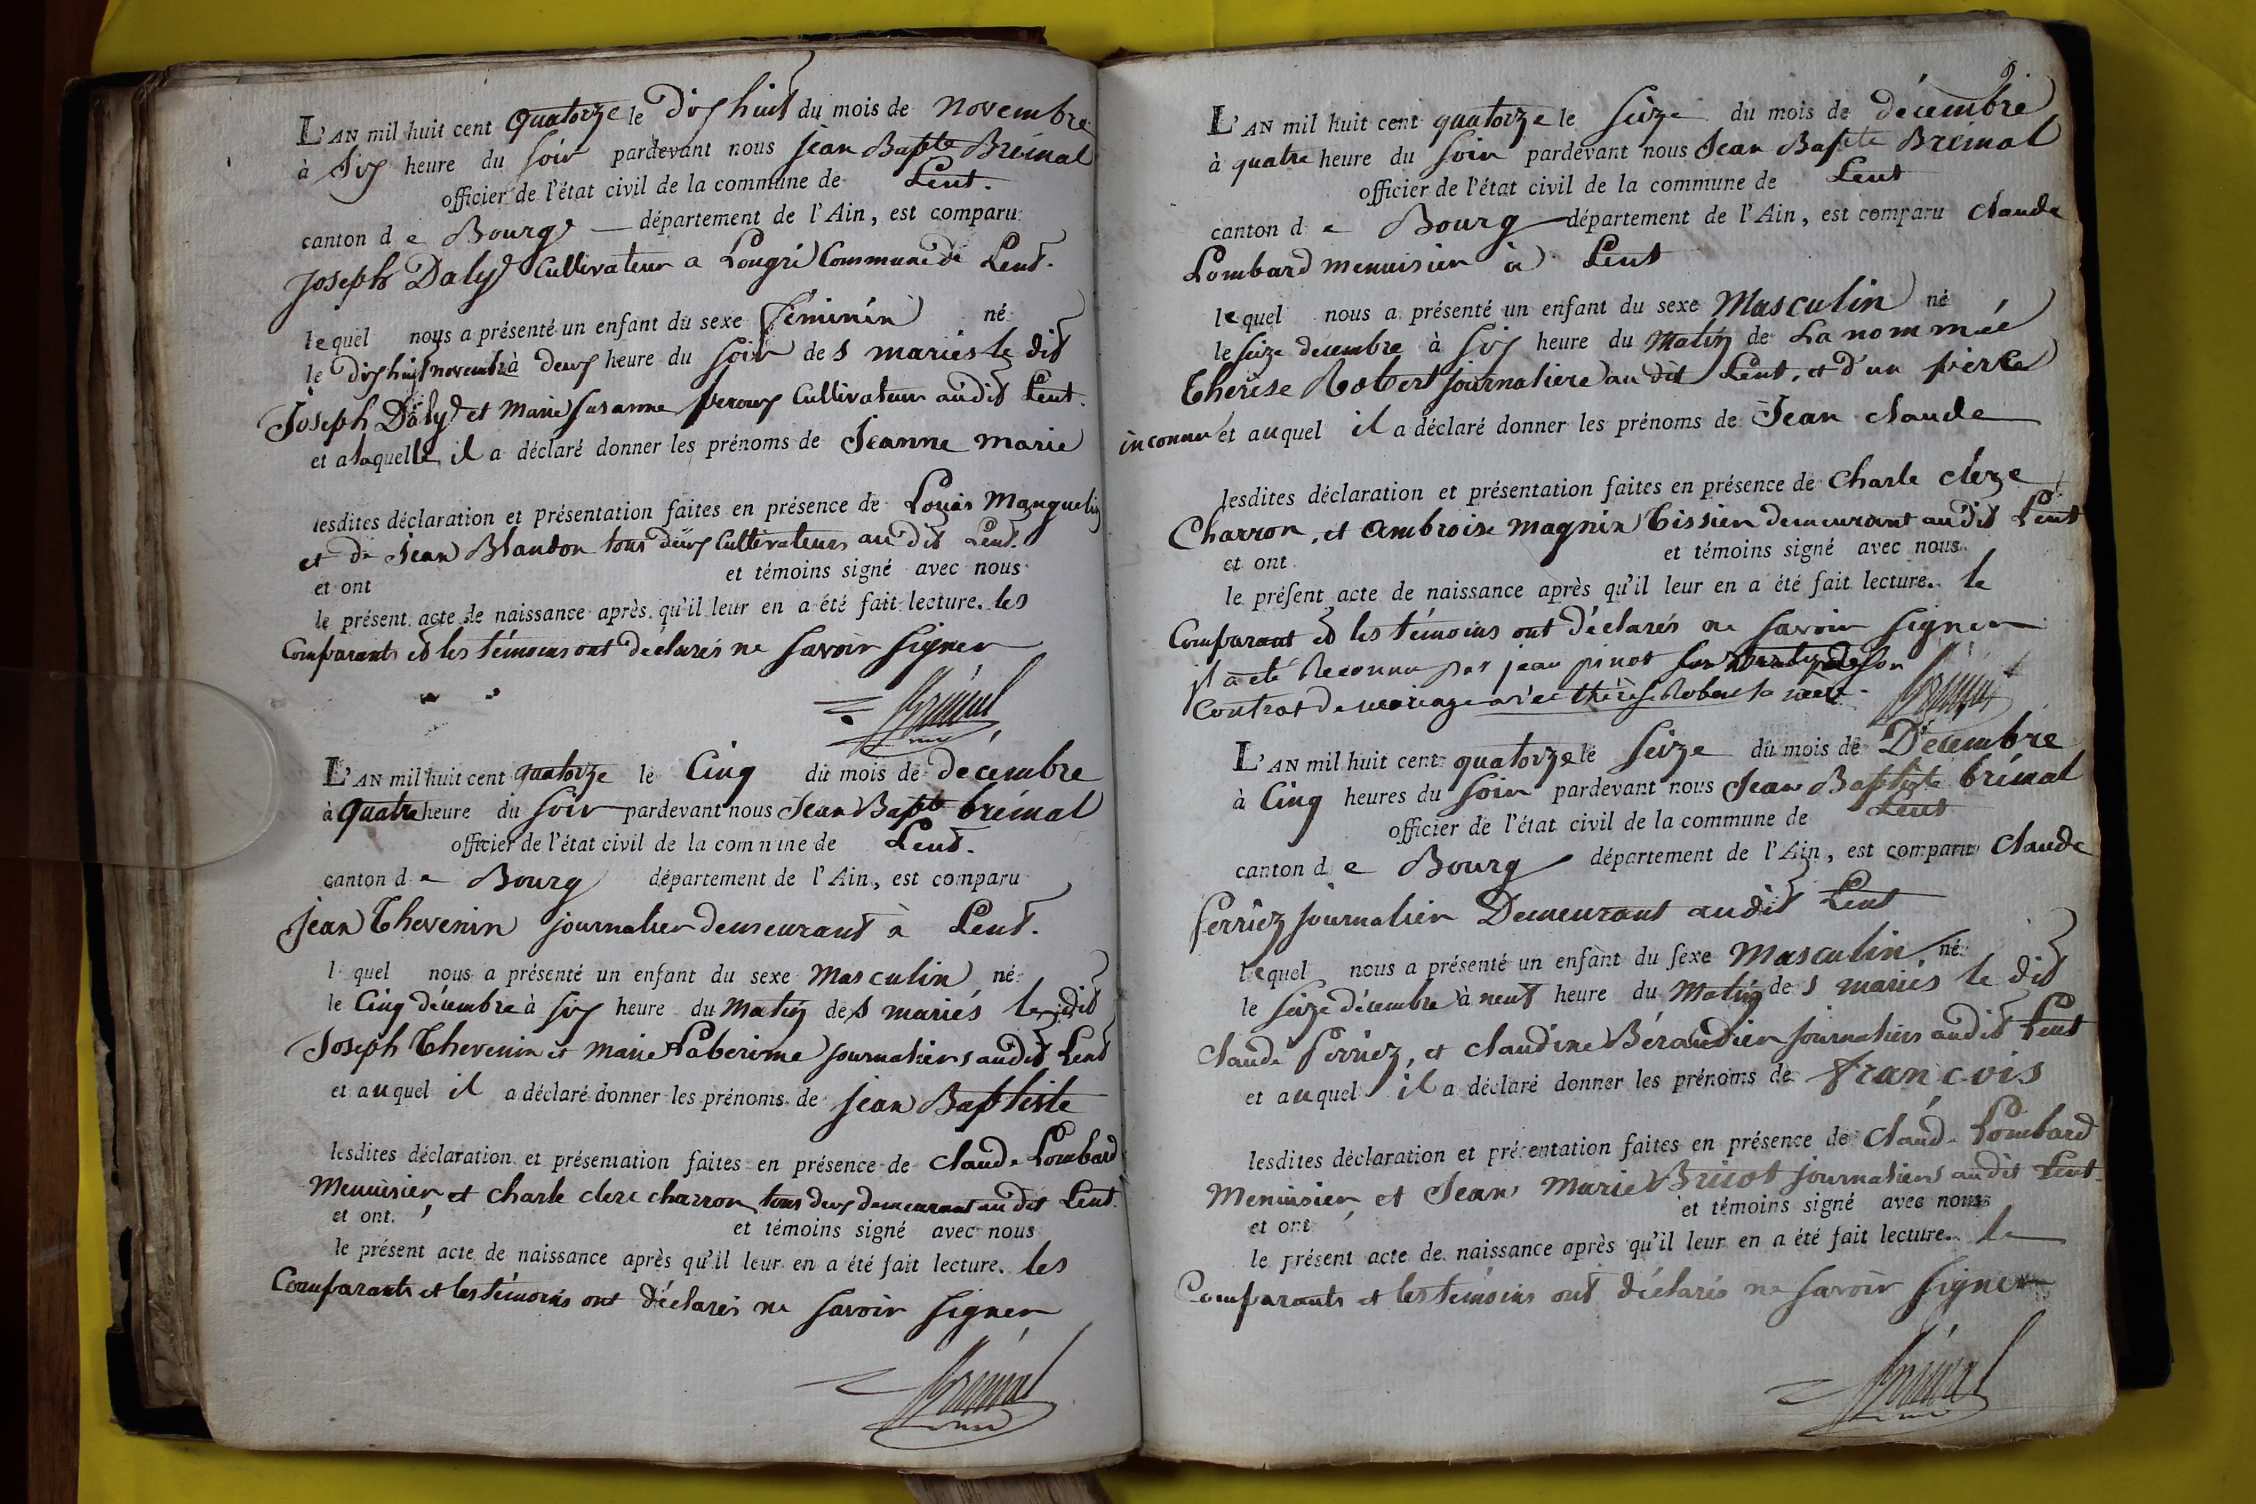 L'AN mil huit cent quatorze le dix huit du mois de novembre
à Six heure du soir pardevant nous jean Bapte Bréinal
officier de l'état civil de la commune de Lent.
canton d e Bourg département de l'Ain, est comparu
Joseph Daly Cultivateur a Longri Commune de Lent.
lequel nous a présenté un enfant du sexe féminin né
le dix huit novembre à deux heure du soir des mariés le dit
Joseph Daly et marie susanne peroux Cultivateur audit Lent.
et a laquelle il a déclaré donner les prénoms de Jeanne marie
lesdites déclaration et présentation faites en présence de Louis Manguelin
et de Jean Blandon tous deux Cultivateurs audit Lent.
et ont et témoins signé avec nous
le présent acte de naissance après qu'il leur en a été fait lecture. les
Comparants et les témoins ont déclarés ne savoir signer
Bréinal
L'AN mil huit cent quatorze le Cinq du mois de décembre
à quatre heure du soir pardevant nous Jean Bapte bréinal
officier de l'état civil de la commune de Lent.
canton d e Bourg département de l'Ain, est comparu
jean Thevenin journalier demeurant à Lent.
l quel nous a présenté un enfant du sexe Masculin né
le Cinq décembre à six heure du Matin des mariés le dit
Joseph Thevenin et marie Laberime journaliers audit Lent
et auquel il a déclaré donner les prénoms de jean Baptiste
lesdites déclaration et présentation faites en présence de Claude Lombard
Menuisier et Charle clere charron tous deux demeurant audit Lent.
et ont et témoins signé avec nous
le présent acte de naissance après qu'il leur en a été fait lecture. les
Comparants et les témoins ont déclarés ne savoir signer
Bréinal
L'AN mil huit cent quatorze le Seize du mois de décembre
à quatre heure du soir pardevant nous Jean Bapte Bréinal
officier de l'état civil de la commune de Lent
canton d e Bourg département de l'Ain, est comparu claude
Lombard menuisier à Lent
lequel nous a présenté un enfant du sexe Masculin né
le seize decembre à six heure du Matin de La nommée
Therese Robert journaliere au dit Lent, et d'un pere
inconnu et auquel il a déclaré donner les prénoms de Jean claude
lesdites déclaration et présentation faites en présence de Charle cleze
Charron, et ambroise magnin Tissier demeurant audit Lent
et ont et témoins signé avec nous
le présent acte de naissance après qu'il leur en a été fait lecture. le
Comparant et les témoins ont déclarés ne savoir signer
il a été Reconnu par jean pinot son
Contrat de mariage avec thérèse Robert sa mère.
Bréinal
L'AN mil huit cent quatorze le seize du mois de Décembre
à Cinq heures du soir pardevant nous Jean Baptiste bréinal
officier de l'état civil de la commune de Lent
canton d e Bourg département de l'Ain, est comparu Claude
ferriez journalier Demeurant audit Lent
lequel nous a présenté un enfant du sexe Masculin né
le seize décembre à neuf heure du Matin des mariés le dit
Claude ferriez, et claudine Béraudier journaliers audit Lent
et auquel il a déclaré donner les prénoms de françois
lesdites déclaration et présentation faites en présence de Claude Lombard
Menuisier et Jean Marie Bricot journaliers audit Lent
et ont et témoins signé avec nous
le présent acte de naissance après qu'il leur en a été fait lecture. le
Comparants et les témoins ont déclarés ne savoir signer
Bréinal